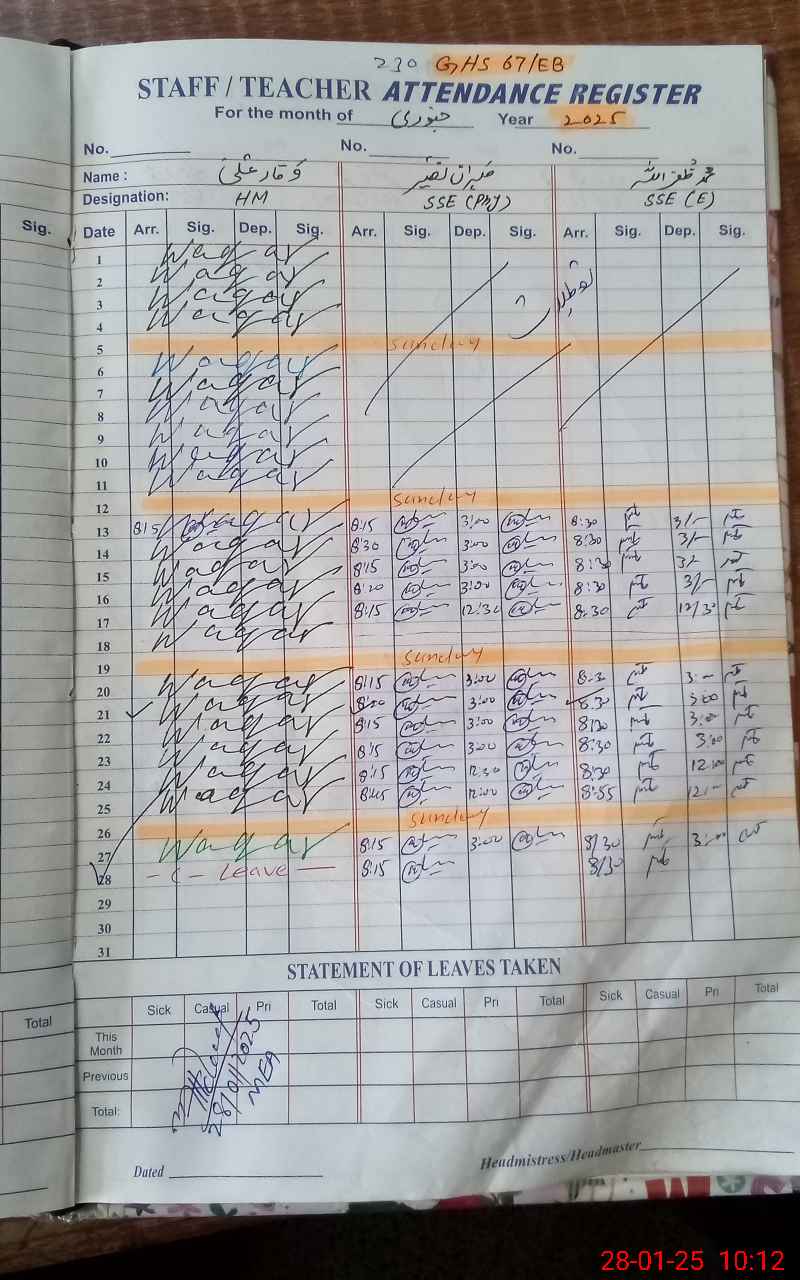 230 GHS 67/EB
STAFF / TEACHER ATTENDANCE REGISTER
For the month of جنوری Year 2025
No. No. No.
Name : وقار علی محمد ظفر اللہ
Designation: HM SSE (Phy) SSE (E)
Sig. Date Arr. Sig. Dep. Sig. Arr. Sig. Dep. Sig. Arr. Sig. Dep. Sig.
1 Waqar
2 Waqar
3 Waqar
4 Waqar
تعطیلات
5 Sunday
6 Waqar
7 Waqar
8 Waqar
9 Waqar
10 Waqar
11 Waqar
12 Sunday
13 8:15 Waqar 8:15 3:00 8:30 3/-
14 Waqar 8:30 3:00 8:30 3/-
15 Waqar 8:15 3:00 8:30 3/-
16 Waqar 8:20 3:00 8:30 3/-
17 Waqar 8:15 12:30 8:30 12/30
18 Waqar
19 Sunday
20 Waqar 8:15 3:00 3:00
21 Waqar 8:20 3:00 8:30 3:00
22 Waqar 8:15 3:00 8:30 3:00
23 Waqar 8:15 3:00 8:30 3:00
24 Waqar 8:15 12:30 8:30 12:00
25 Waqar 12:00 8:55
26 Sunday
27 Waqar 8:15 3:00 8/30 3:00
28 - C - Leave - 8:15 8/30
29
30
31
STATEMENT OF LEAVES TAKEN
Sick Casual Pri Total Sick Casual Pri Total Sick Casual Pri Total
Total
This Month
Previous
Total:
28/01/2025
MEA
Dated Headmistress/Headmaster
28-01-25 10:12